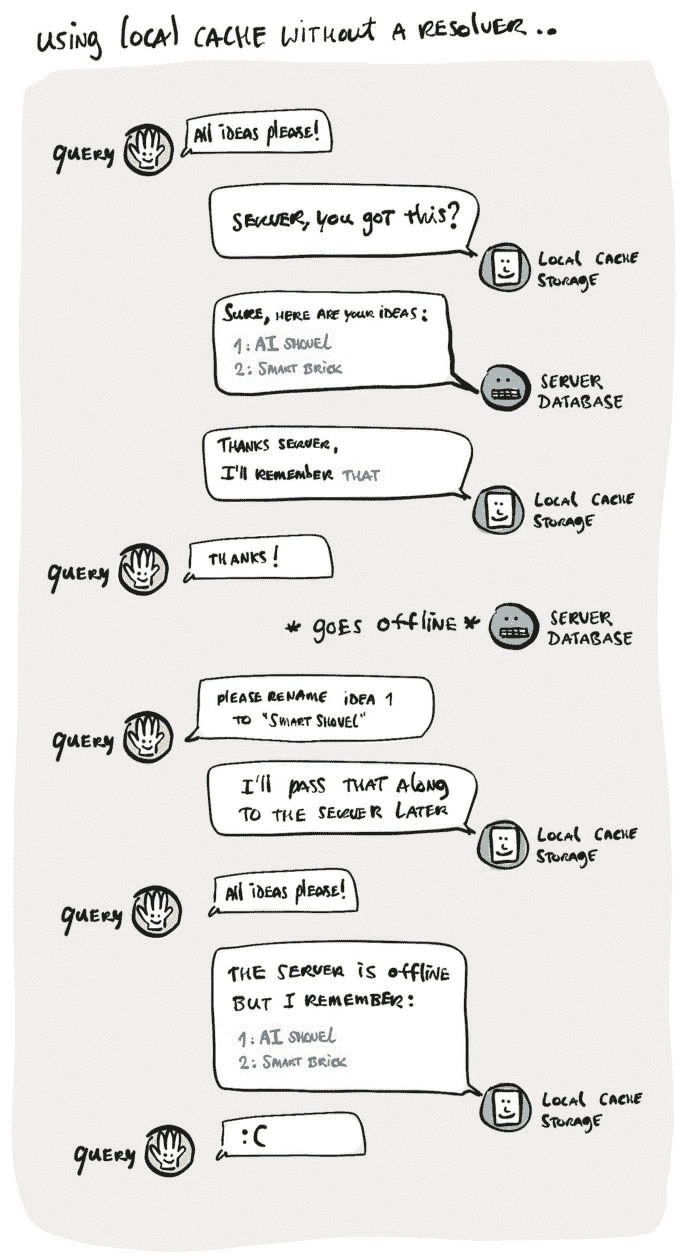 using local CACHE without A RESOLVER..
QUERY
All iDEAS please!
SERVER, you got this?
LOCAL CACHE
STORAGE
SURE, HERE ARE YOUR iDEAS:
1: AI SHOVEL
2: SMART BRICK
SERVER
DATABASE
THANKS SERVER,
I'll REMEMBER THAT
LOCAL CACHE
STORAGE
QUERY
THANKS!
* GOES OffLINE *
SERVER
DATABASE
PLEASE RENAME iDEA 1
TO "SMART SHOVEL"
QUERY
I'll PASS THAT ALONG
TO THE SERVER LATER
LOCAL CACHE
STORAGE
QUERY
All iDEAS please!
THE SERVER iS OffLINE
BUT I REMEMBER:
1: AI SHOVEL
2: SMART BRICK
LOCAL CACHE
STORAGE
QUERY
:C